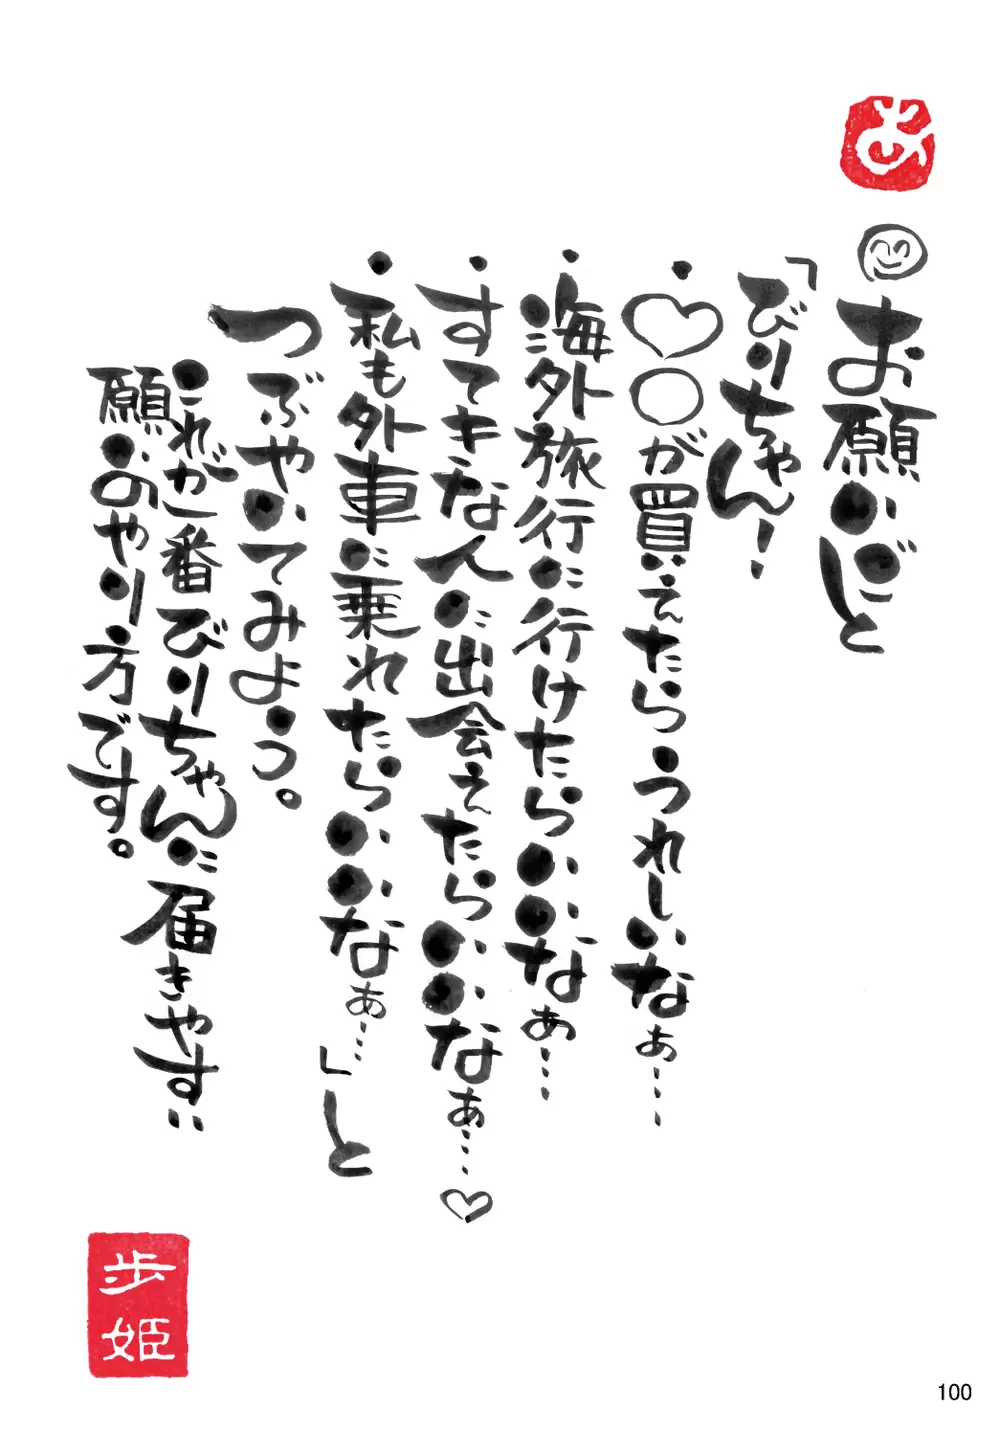 あ
お願いごと
「びりちゃん!
・♡○が買えたらうれしいなぁ……
・海外旅行に行けたらいいなぁ……
・すてきな人に出会えたらいいなぁ……♡
・私も外車に乗れたらいいなぁ……」と
つぶやいてみよう。
これが一番びりちゃんに届きやすい
願いのやり方です。
歩姫
100